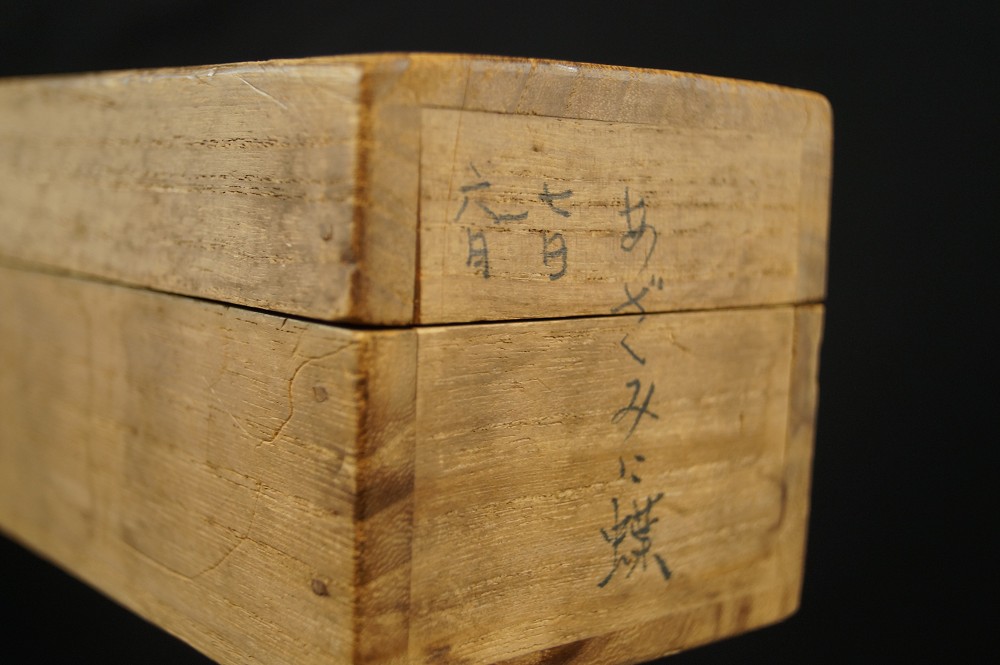 あざみに蝶
七月
六月